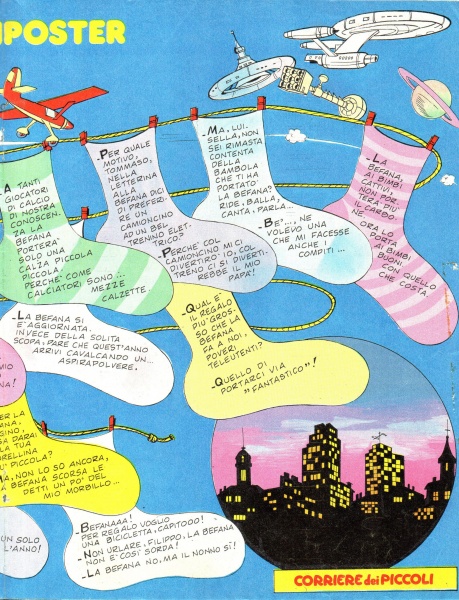 IPOSTER
A TANTI
GIOCATORI
DI CALCIO
DI NOSTRA
CONOSCEN-
ZA LA
BEFANA
PORTERA'
SOLO UNA
CALZA PICCOLA
PICCOLA.
PERCHE' COME
CALCIATORI SONO...
MEZZE
CALZETTE.
-PER QUALE
MOTIVO,
TOMMASO,
NELLA
LETTERINA
ALLA
BEFANA DICI
DI PREFERI-
RE UN
CAMIONCINO
AD UN BEL
TRENINO ELET-
TRICO?
-PERCHE' COL
CAMIONCINO MI CI
DIVERTIRO' IO, COL
TRENO CI SI DIVERTI-
REBBE IL MIO
PAPA'!
-MA, LUI-
SELLA, NON
SEI RIMASTA
CONTENTA
DELLA
BAMBOLA
CHE TI HA
PORTATO
LA BEFANA?
RIDE, BALLA,
CANTA, PARLA...
-BE'..., NE
VOLEVO UNA
CHE MI FACESSE
ANCHE I
COMPITI...
-LA
BEFANA,
AI BIMBI
CATTIVI,
NON POR-
TERA' PIU'
IL CARBO-
NE.
ORA LO
PORTA
AI BIMBI
BUONI
CON QUELLO
CHE COSTA.
-LA BEFANA SI
E' AGGIORNATA.
INVECE DELLA SOLITA
SCOPA, PARE CHE QUEST'ANNO
ARRIVI CAVALCANDO UN...
ASPIRAPOLVERE.
-QUAL E'
IL REGALO
PIU' GROS-
SO CHE LA
BEFANA
FA A NOI,
POVERI
TELEUTENTI?
-QUELLO DI
PORTARCI VIA
"FANTASTICO"!
MIO
NA!
PER LA
BEFANA,
GINO,
SA DARAI
LA TUA
RELLINA
U' PICCOLA?
MA, NON LO SO ANCORA,
A BEFANA SCORSA LE
DETTI UN PO' DEL
MIO MORBILLO...
UN SOLO
L'ANNO!
-BEFANAAA!
PER REGALO VOGLIO
UNA BICICLETTA, CAPITOOO!
-NON URLARE, FILIPPO, LA BEFANA
NON E' COSI' SORDA!
-LA BEFANA NO, MA IL NONNO SI!
CORRIERE dei PICCOLI